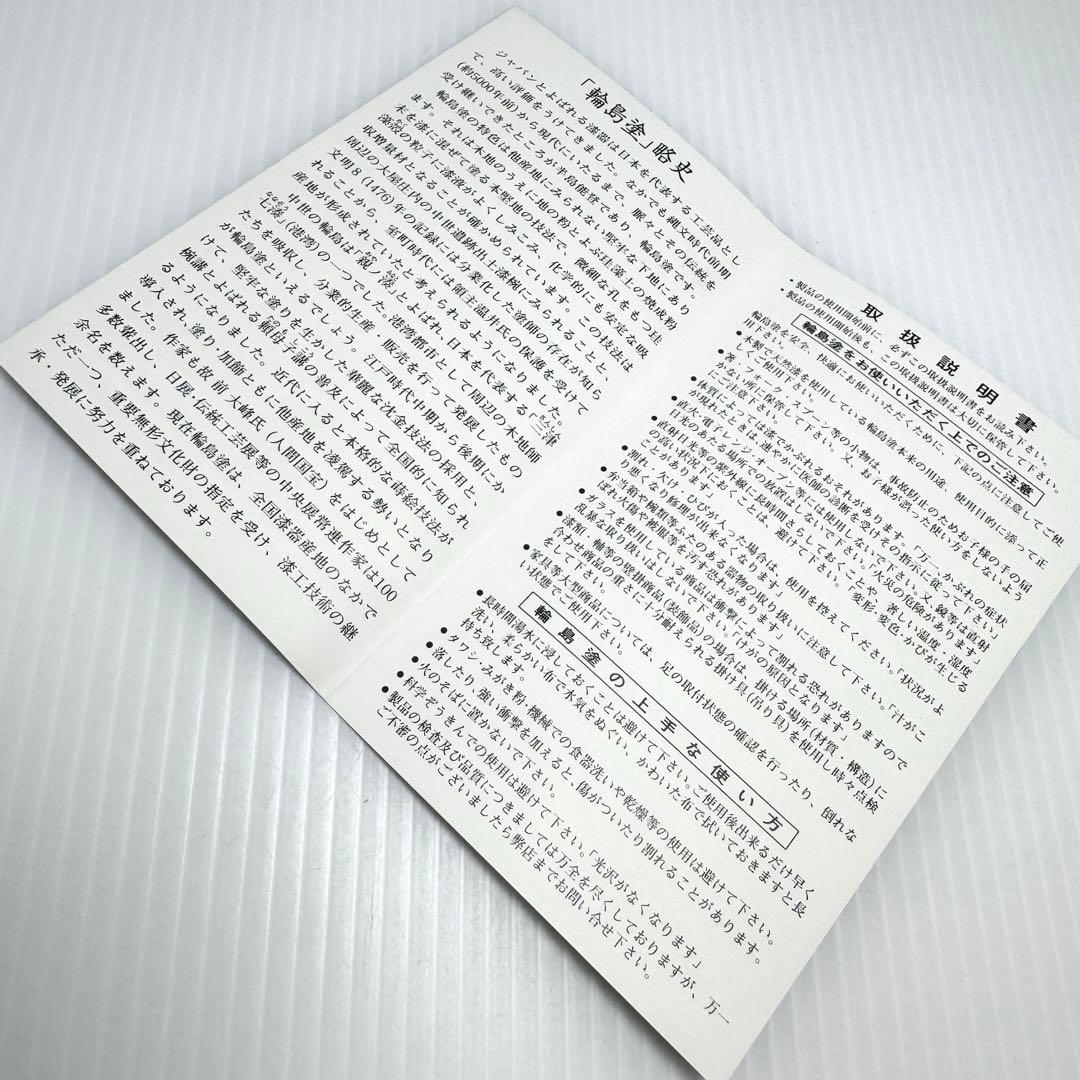 「輪島塗」略史
ジャパンとよばれる漆器は日本を代表する工芸品とし
て、高い評価をうけてきました。なかでも縄文時代前期
(約5000年前)から現代にいたるまで、脈々とその伝統を
受け継いできたところが半島能登であり、輪島塗です。
輪島塗の特色は他産地にみられない堅牢な下地にあり
ます。それは木地のうえに地の粉とよぶ珪藻土の焼成粉
末を漆に混ぜて塗る本堅地の技法で、微細な孔をもつ珪
藻殻の粒子に漆液がよくしみこみ、化学的にも安定な吸
収増量材となることが確かめられています。この技法は
周辺の大屋庄内の中世遺跡出土漆椀にみられること、
文明8(1476)年の記録には分業化した塗師の存在が知ら
れることから、室町時代に在領主温井氏の保護を受けて
産地が形成されていたと考えられるようになりました。
中世の輪島は「親ノ湊」とよばれ、日本を代表する「三
七湊」(港湾)の一つでした。港湾都市として周辺の木地師
たちを吸収し、分業的生産、販売を行って発展したもの
が輪島塗といえるでしょう。江戸時代中期から後期にか
けて、堅牢な塗りを生かした華麗な沈金技法の採用と、
椀講とよばれる頼母子講の普及によって全国的に知られ
るようになりました。近代に入ると本格的な蒔絵技法が
導入され、塗り・加飾ともに他産地を凌駕する勢いとなり
ました。作家も故 前 大峰氏(人間国宝)をはじめとして
多数輩出し、日展・伝統工芸展等の中央展常連作家は100
余名を数えます。現在輪島塗は、全国漆器産地のなかで
ただ一つ、重要無形文化財の指定を受け、漆工技術の継
承・発展に努力を重ねております。
取扱説明書
・製品の使用開始前に、必ずこの取扱説明書をお読み下さい。
・製品の使用開始後も、この取扱説明書は大切に保管して下さい。
輪島塗をお使いいただく上でのご注意
輪島塗を安全、快適にお使いいただくために、下記の点に注意してご使
用下さい。
●木製で天然漆を使用している輪島塗本来の用途、使用目的に添って正
しくご使用下さい。
●箸、フォーク、スプーン等の小物は、事故防止のためお子様の手の届
かない所に保管して下さい。又、お子様が誤った使い方をしないよう
にご注意下さい。
●体質によっては漆でかぶれるおそれがあります。「万一、かぶれの症状
が現れたときは、速やかに医師の診断を受けその指示に従って下さい」
●直火、電子レンジオーブン等には使用しないで下さい。又、鏡等は直射
日光のあたる場所での放置はしないで下さい。火災の危険があります」
●直射日光等の紫外線に長時間さらしておくことや、著しい温度・湿度
の高い状況下におくことは、避けて下さい。「変形・変色・かびが生じる
ことがあります」
●割れ、欠け、ひびが入った場合は、使用を控えてください。「状況がよ
り悪くなり修理が出来なくなります」
●弁当箱や椀類等ふたのある器物の取り扱いに注意して下さい。「汁がこ
ぼれ火傷や被服等を汚す恐れがあります」
●ガラスを使用している商品は衝撃によって割れる恐れがありますので
乱暴な取り扱いはしないで下さい。「けがの原因となります」
●漆額・軸等の壁掛商品(装飾品)の場合は、掛ける場所(材質・構造)に
合わせ商品の重さに十分耐えられる掛け具(吊り具)を使用し時々点検
をして下さい。
●家具等大型商品については、足の取付状態の確認を行ったり、倒れな
い状態でご使用下さい。
輪島塗の上手な使い方
●長時間湯水に浸しておくことは避けて下さい。ご使用後出来るだけ早く
洗い、柔らかい布で水気をぬぐい、かわいた布で拭いておきますと長
持ち致します。
●タワシ・みがき粉・機械での食器洗いや乾燥等の使用は避けて下さい。
●落したり、強い衝撃を加えると、傷がついたり割れることがあります。
●火のそばに置かないで下さい。
●科学ぞうきんでの使用は避けて下さい。「光沢がなくなります」
●製品の検査及び品質につきましては万全を尽くしておりますが、万一
ご不審の点がございましたら弊店までお問い合せ下さい。